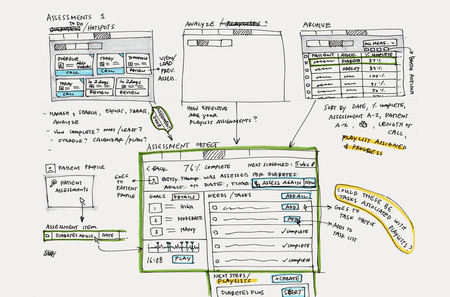 ASSESSMENTS 1
TO DO
/HOTSPOTS
OVERDUE
TODAY
TOMORROW
CALL
CALL
REVIEW
TODAY
IN 2 DAYS
IN 3 DAYS
CALL
REVIEW
REVIEW
VIEW/
LOAD
PREV.
ASSESS.
- MANAGE, SEARCH, EXPORT, SHARE,
ANALYZE
- HOW COMPLETE? MOST/LEAST?
- OVERDUE? CALENDAR/PLAN?
ANALYZE / PLAYLISTS?
HOW EFFECTIVE
ARE YOUR
PLAYLIST ASSIGNMENTS?
ARCHIVE
ALL MEAS.
PATIENT
ASSESS.
% COMPLETE
DIABETES
37%
OBESITY
89%
100%
BULK ACTIONS
SORT BY DATE, % COMPLETE,
ASSESSMENT A-Z, PATIENT
A-Z, LENGTH OF
CALL,
PLAYLIST ASSIGNED
& PROGRESS
ASSESSMENT OBJECT
PATIENT PROFILE
GOES
TO
PATIENT
PROFILE
PATIENT
ASSESSMENTS
ASSESSMENT ITEM
DIABETES ADULT
DATE
< BACK
76% COMPLETE
NEXT SCHEDULED:
WAS ASSESSED FOR DIABETES
ADULT ON DATE, TIME.
ASSESS AGAIN NOW
GOALS
DETAILS
1 = HIGH
2 = MODERATE
3 = MANY
16:08
PLAY
NEEDS/TASKS
ADD ALL
ADD
ADD
✓ COMPLETE
✓ COMPLETE
✓ COMPLETE
GOES TO
TASK OBJECT
ADDS TO
TASK LIST
COULD THESE BE
TASKS ASSOCIATED WITH
PLAYLIST?
NEXT STEPS/
PLAYLISTS
+ CREATE
DIABETES PLUS
START